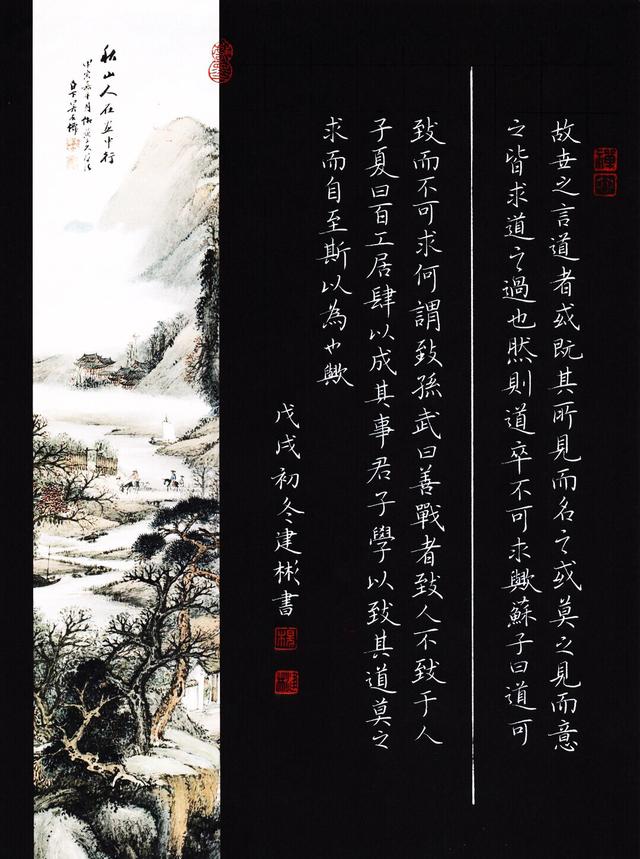 故世之言道者或既其所見而名之或莫之見而意
之皆求道之過也然則道卒不可求歟蘇子曰道可
致而不可求何謂致孫武曰善戰者致人不致于人
子夏曰百工居肆以成其事君子學以致其道莫之
求而自至斯以為也歟
戊戌初冬建彬書
秋山人在畫中行
白下吴石僊